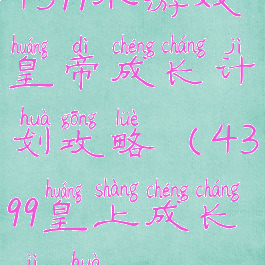 huáng dì chéng cháng jì
皇帝成长计
huà gōng lüè
划攻略（43
huáng shàng chéng cháng
99皇上成长
jì huà